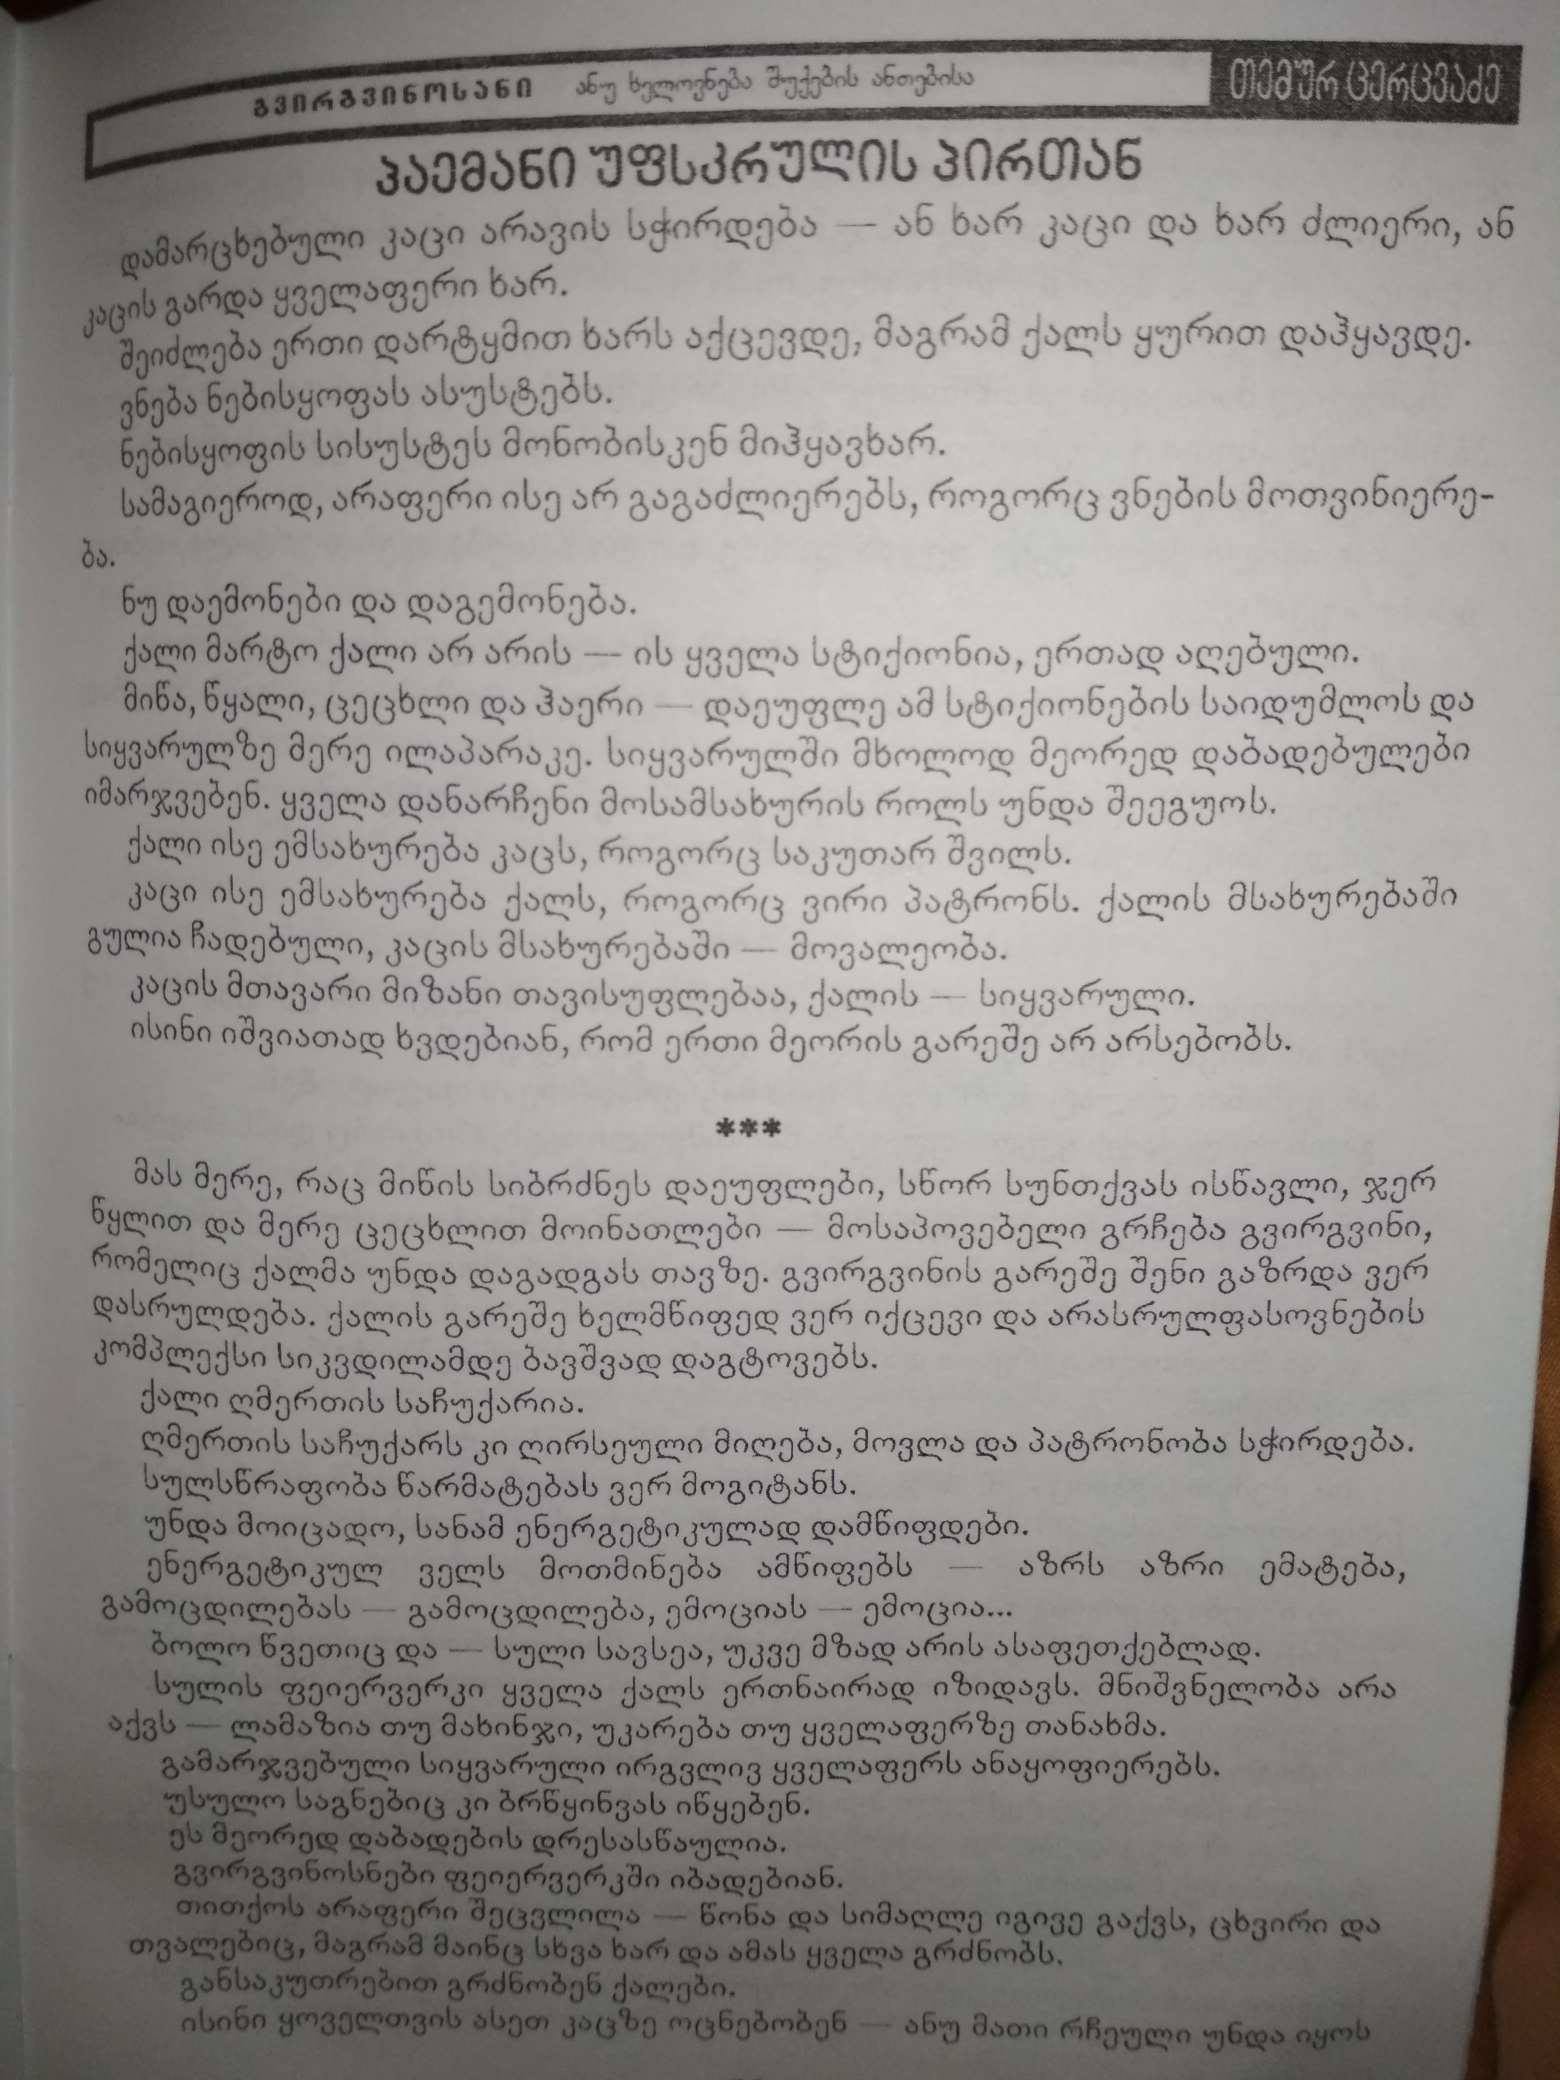 გვირგვინოსანი ანუ ხელოვნება შუქების ანთებისა თემურ ცერცვაძე
პაემანი უფსკრულის პირთან
დამარცხებული კაცი არავის სჭირდება — ან ხარ კაცი და ხარ ძლიერი, ან
კაცის გარდა ყველაფერი ხარ.
შეიძლება ერთი დარტყმით ხარს აქცევდე, მაგრამ ქალს ყურით დაჰყავდე.
ვნება ნებისყოფას ასუსტებს.
ნებისყოფის სისუსტეს მონობისკენ მიჰყავხარ.
სამაგიეროდ, არაფერი ისე არ გაგაძლიერებს, როგორც ვნების მოთვინიერე-
ბა.
ნუ დაემონები და დაგემონება.
ქალი მარტო ქალი არ არის — ის ყველა სტიქიონია, ერთად აღებული.
მიწა, წყალი, ცეცხლი და ჰაერი — დაეუფლე ამ სტიქიონების საიდუმლოს და
სიყვარულზე მერე ილაპარაკე. სიყვარულში მხოლოდ მეორედ დაბადებულები
იმარჯვებენ. ყველა დანარჩენი მოსამსახურის როლს უნდა შეეგუოს.
ქალი ისე ემსახურება კაცს, როგორც საკუთარ შვილს.
კაცი ისე ემსახურება ქალს, როგორც ვირი პატრონს. ქალის მსახურებაში
გულია ჩადებული, კაცის მსახურებაში — მოვალეობა.
კაცის მთავარი მიზანი თავისუფლებაა, ქალის — სიყვარული.
ისინი იშვიათად ხვდებიან, რომ ერთი მეორის გარეშე არ არსებობს.
***
მას მერე, რაც მიწის სიბრძნეს დაეუფლები, სწორ სუნთქვას ისწავლი, ჯერ
წყლით და მერე ცეცხლით მოინათლები — მოსაპოვებელი გრჩება გვირგვინი,
რომელიც ქალმა უნდა დაგადგას თავზე. გვირგვინის გარეშე შენი გაზრდა ვერ
დასრულდება. ქალის გარეშე ხელმწიფედ ვერ იქცევი და არასრულფასოვნების
კომპლექსი სიკვდილამდე ბავშვად დაგტოვებს.
ქალი ღმერთის საჩუქარია.
ღმერთის საჩუქარს კი ღირსეული მიღება, მოვლა და პატრონობა სჭირდება.
სულსწრაფობა წარმატებას ვერ მოგიტანს.
უნდა მოიცადო, სანამ ენერგეტიკულად დამწიფდები.
ენერგეტიკულ ველს მოთმინება ამწიფებს — აზრს აზრი ემატება,
გამოცდილებას — გამოცდილება, ემოციას — ემოცია...
ბოლო წვეთიც და — სული სავსეა, უკვე მზად არის ასაფეთქებლად.
სულის ფეიერვერკი ყველა ქალს ერთნაირად იზიდავს. მნიშვნელობა არა
აქვს — ლამაზია თუ მახინჯი, უკარება თუ ყველაფერზე თანახმა.
გამარჯვებული სიყვარული ირგვლივ ყველაფერს ანაყოფიერებს.
უსულო საგნებიც კი ბრწყინვას იწყებენ.
ეს მეორედ დაბადების დრესასწაულია.
გვირგვინოსნები ფეიერვერკში იბადებიან.
თითქოს არაფერი შეცვლილა — წონა და სიმაღლე იგივე გაქვს, ცხვირი და
თვალებიც, მაგრამ მაინც სხვა ხარ და ამას ყველა გრძნობს.
განსაკუთრებით გრძნობენ ქალები.
ისინი ყოველთვის ასეთ კაცზე ოცნებობენ — ანუ მათი რჩეული უნდა იყოს